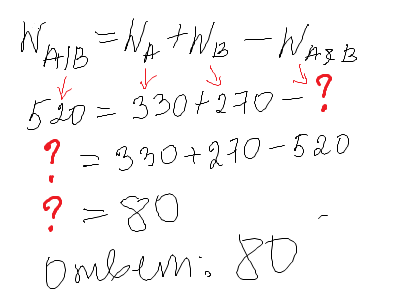 N A|B = N A + N B − N A&B
520 = 330+270 − ?
? = 330+270−520
? = 80
Ответ: 80